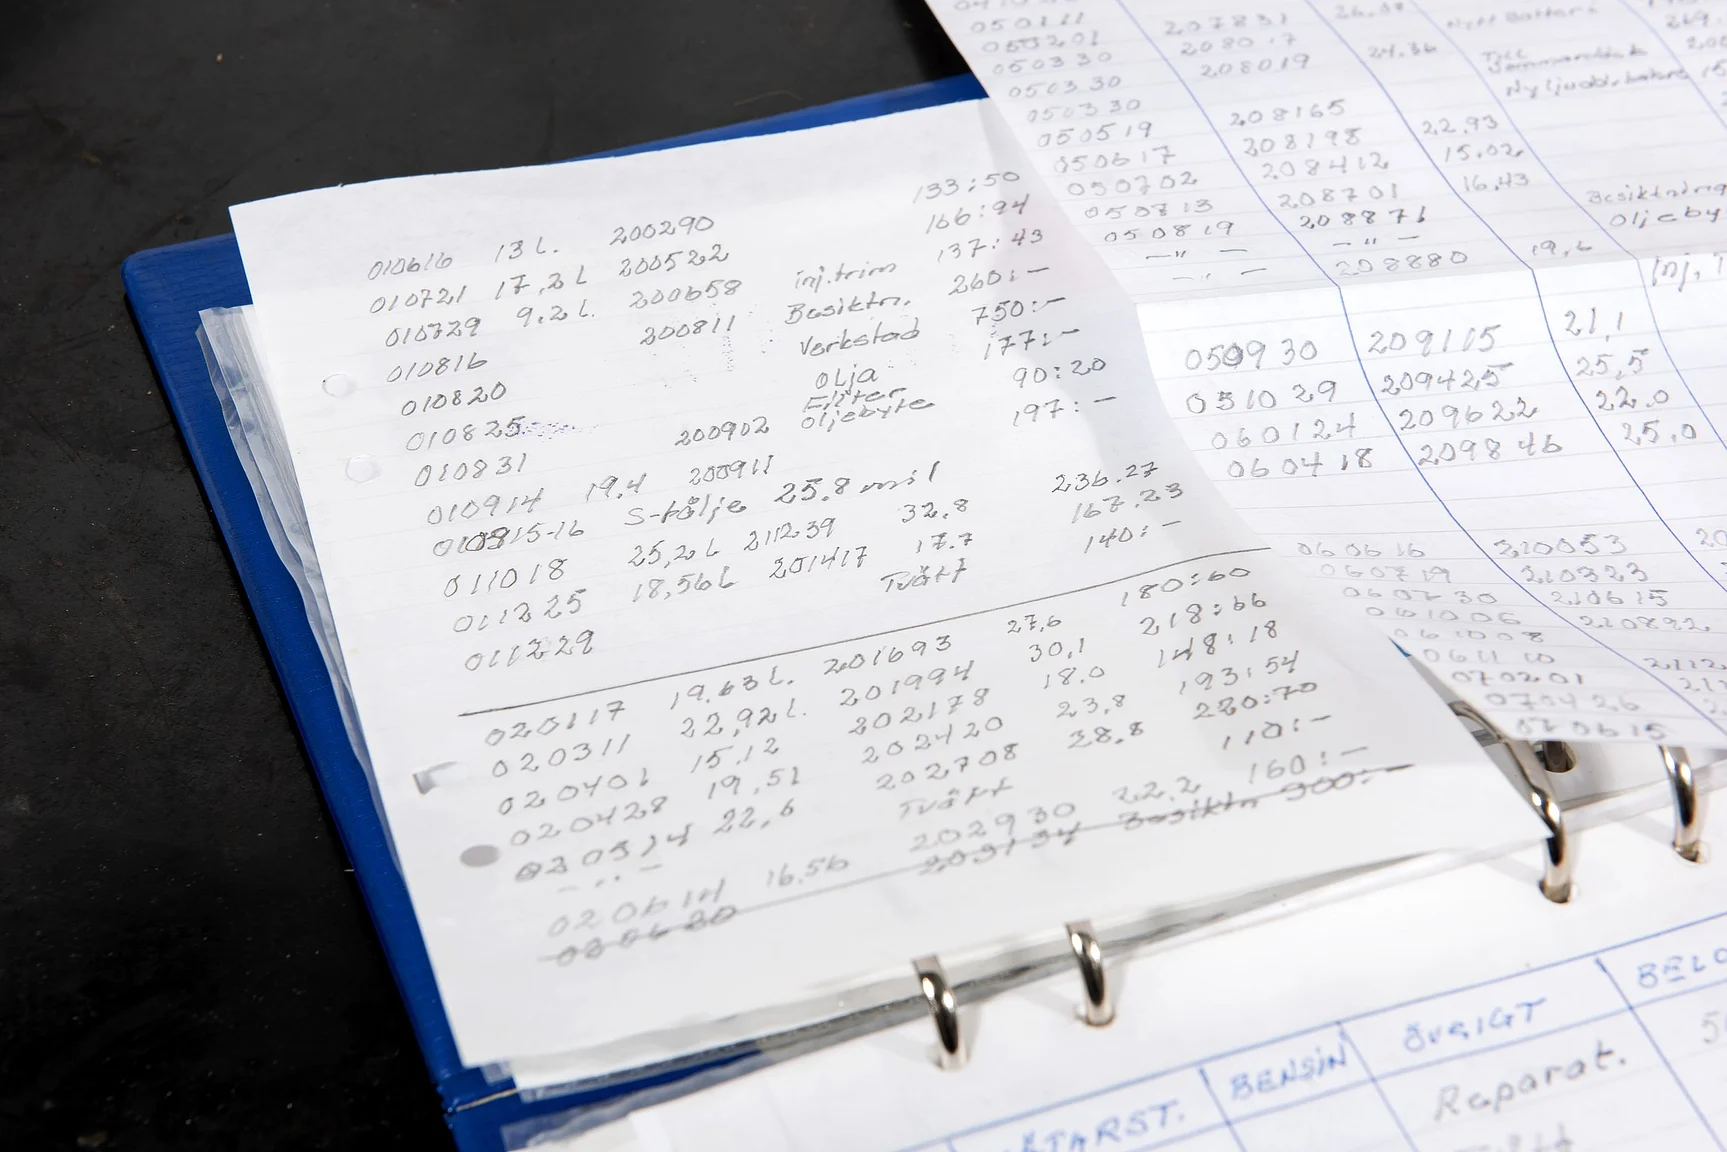 010616 13 l. 200290 133:50
010721 17,2 l 200522 166:94
010729 9.2 l. 200658 137:43
010816 200811 inj.trim 260:-
010820 Besiktn. 750:-
010825 Verkstad 177:-
010831 200902 Olja Filter oljebyte 90:20
010914 19.4 200911 197:-
010915-16 S-tälje 25.8 mil
011018 25,2 l 201239 32,8 236.27
011225 18,56 l 201417 17.7 167.23
011229 Tvätt 140:-
020117 19.63 l. 201693 27,6 180:60
020311 22,92 l. 201994 30,1 218:66
020401 15.12 202178 18.0 148:18
020428 19,51 202420 23,8 193:54
020514 22,6 202708 28.8 220:70
- " - Tvätt 110:-
020614 16.56 202930 22.2 160:-
020620 203134 Besiktn 300:-
050111 207831
050201 208017 24.36
050330 208019
050330
050330 208165
050519 208198 22.93
050617 208412 15.02
050702 208701 16,43
050713 208871 Besiktning
050819 - " - oljeby
- " - 208880 19,6
- " - inj.
050930 209115 21,1
051029 209425 25,5
060124 209622 22.0
060418 209846 25.0
060616 210053
060719 210323
060730 210615
061006 210892
061008
061110 2112
070201
070426
070615
BENSIN ÖVRIGT BELO
ÄTARST. Reparat.